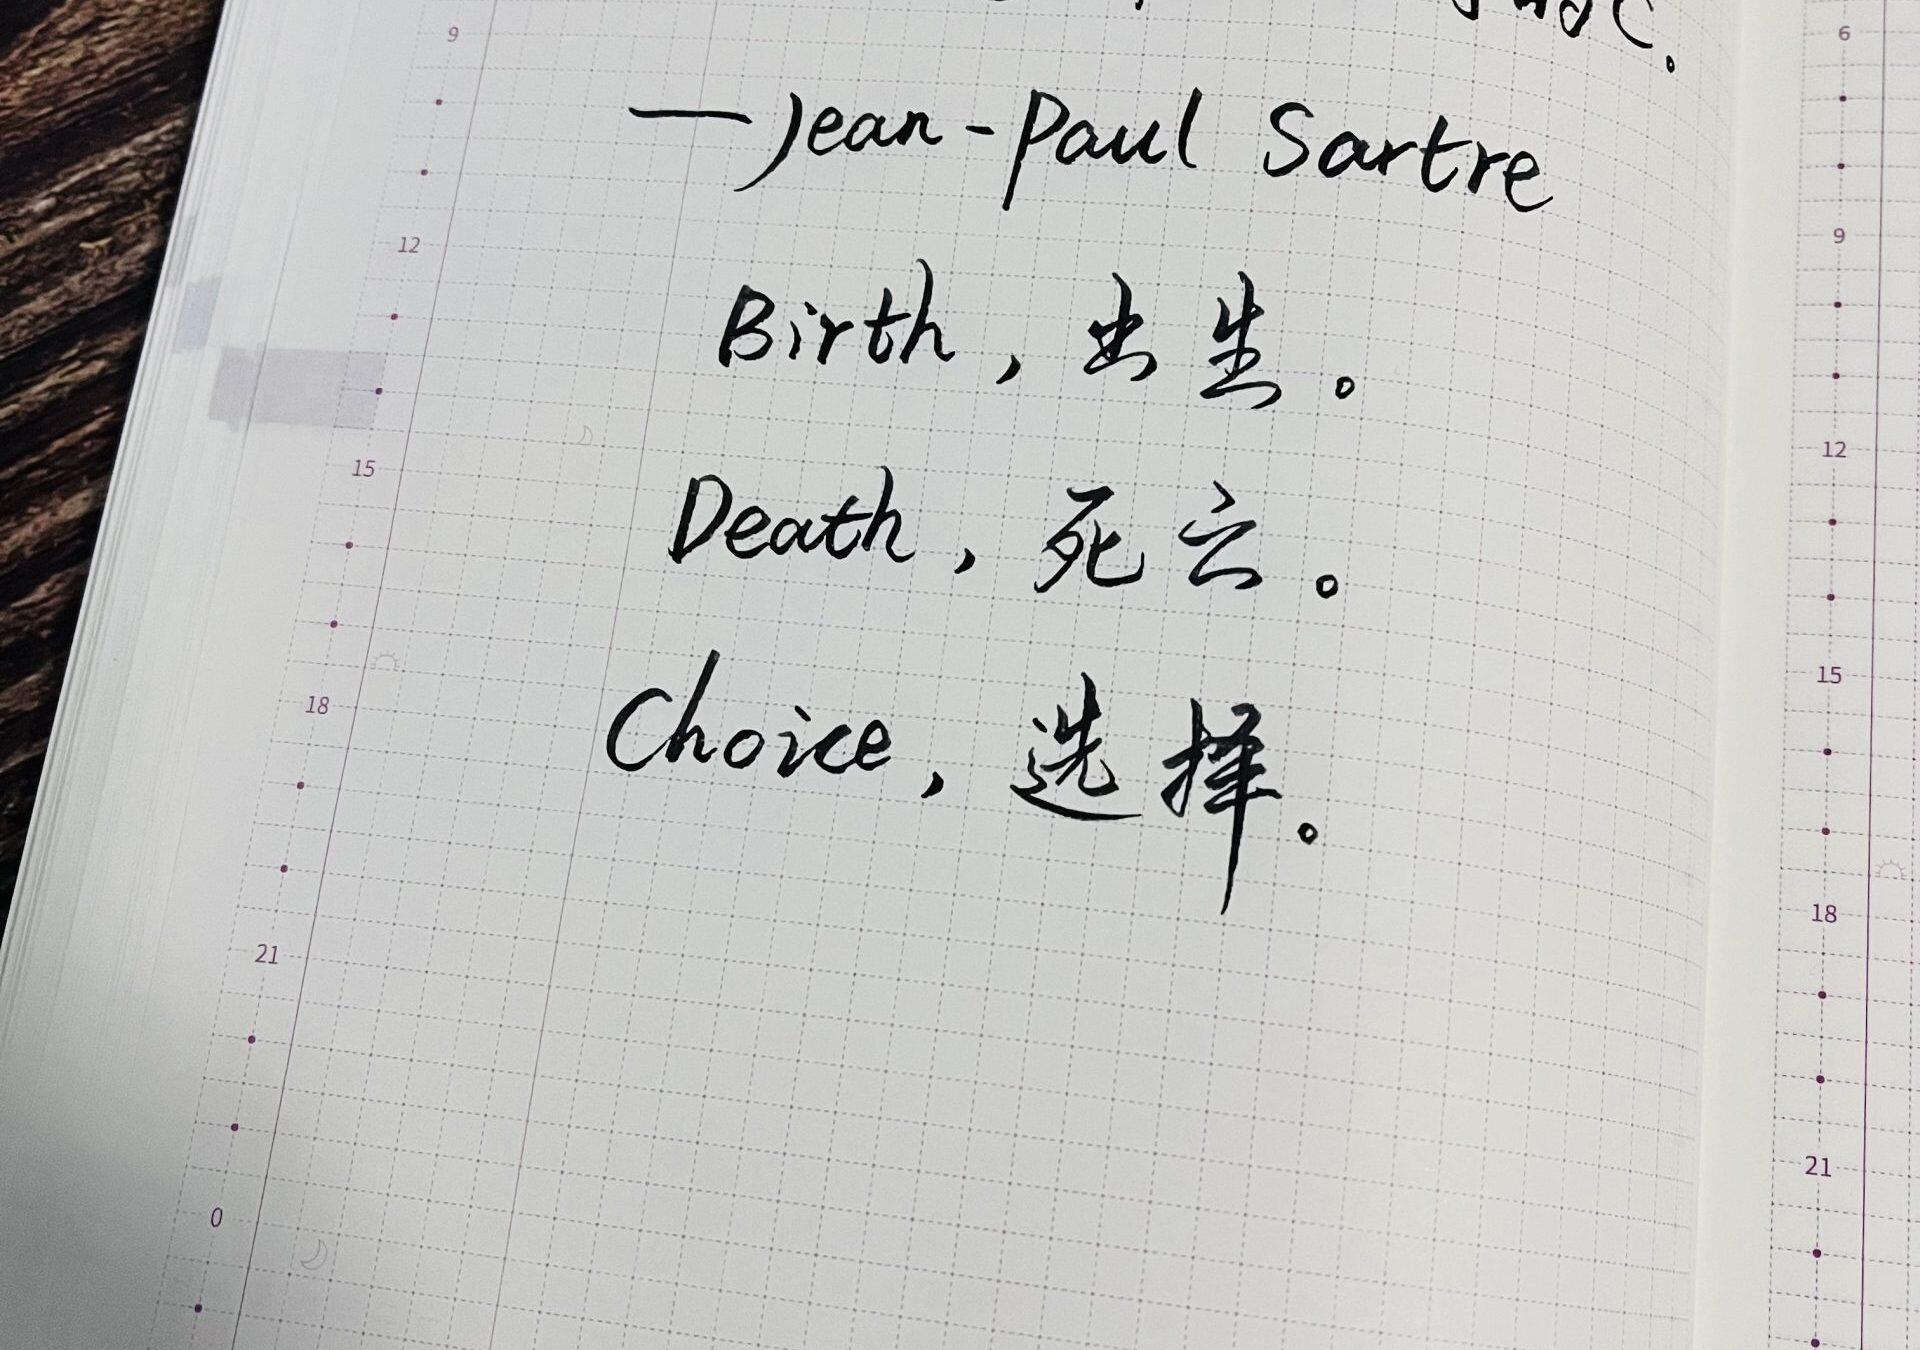 —Jean-Paul Sartre
Birth, 出生。
Death, 死亡。
Choice, 选择。
9
12
15
18
21
0
6
9
12
15
18
21